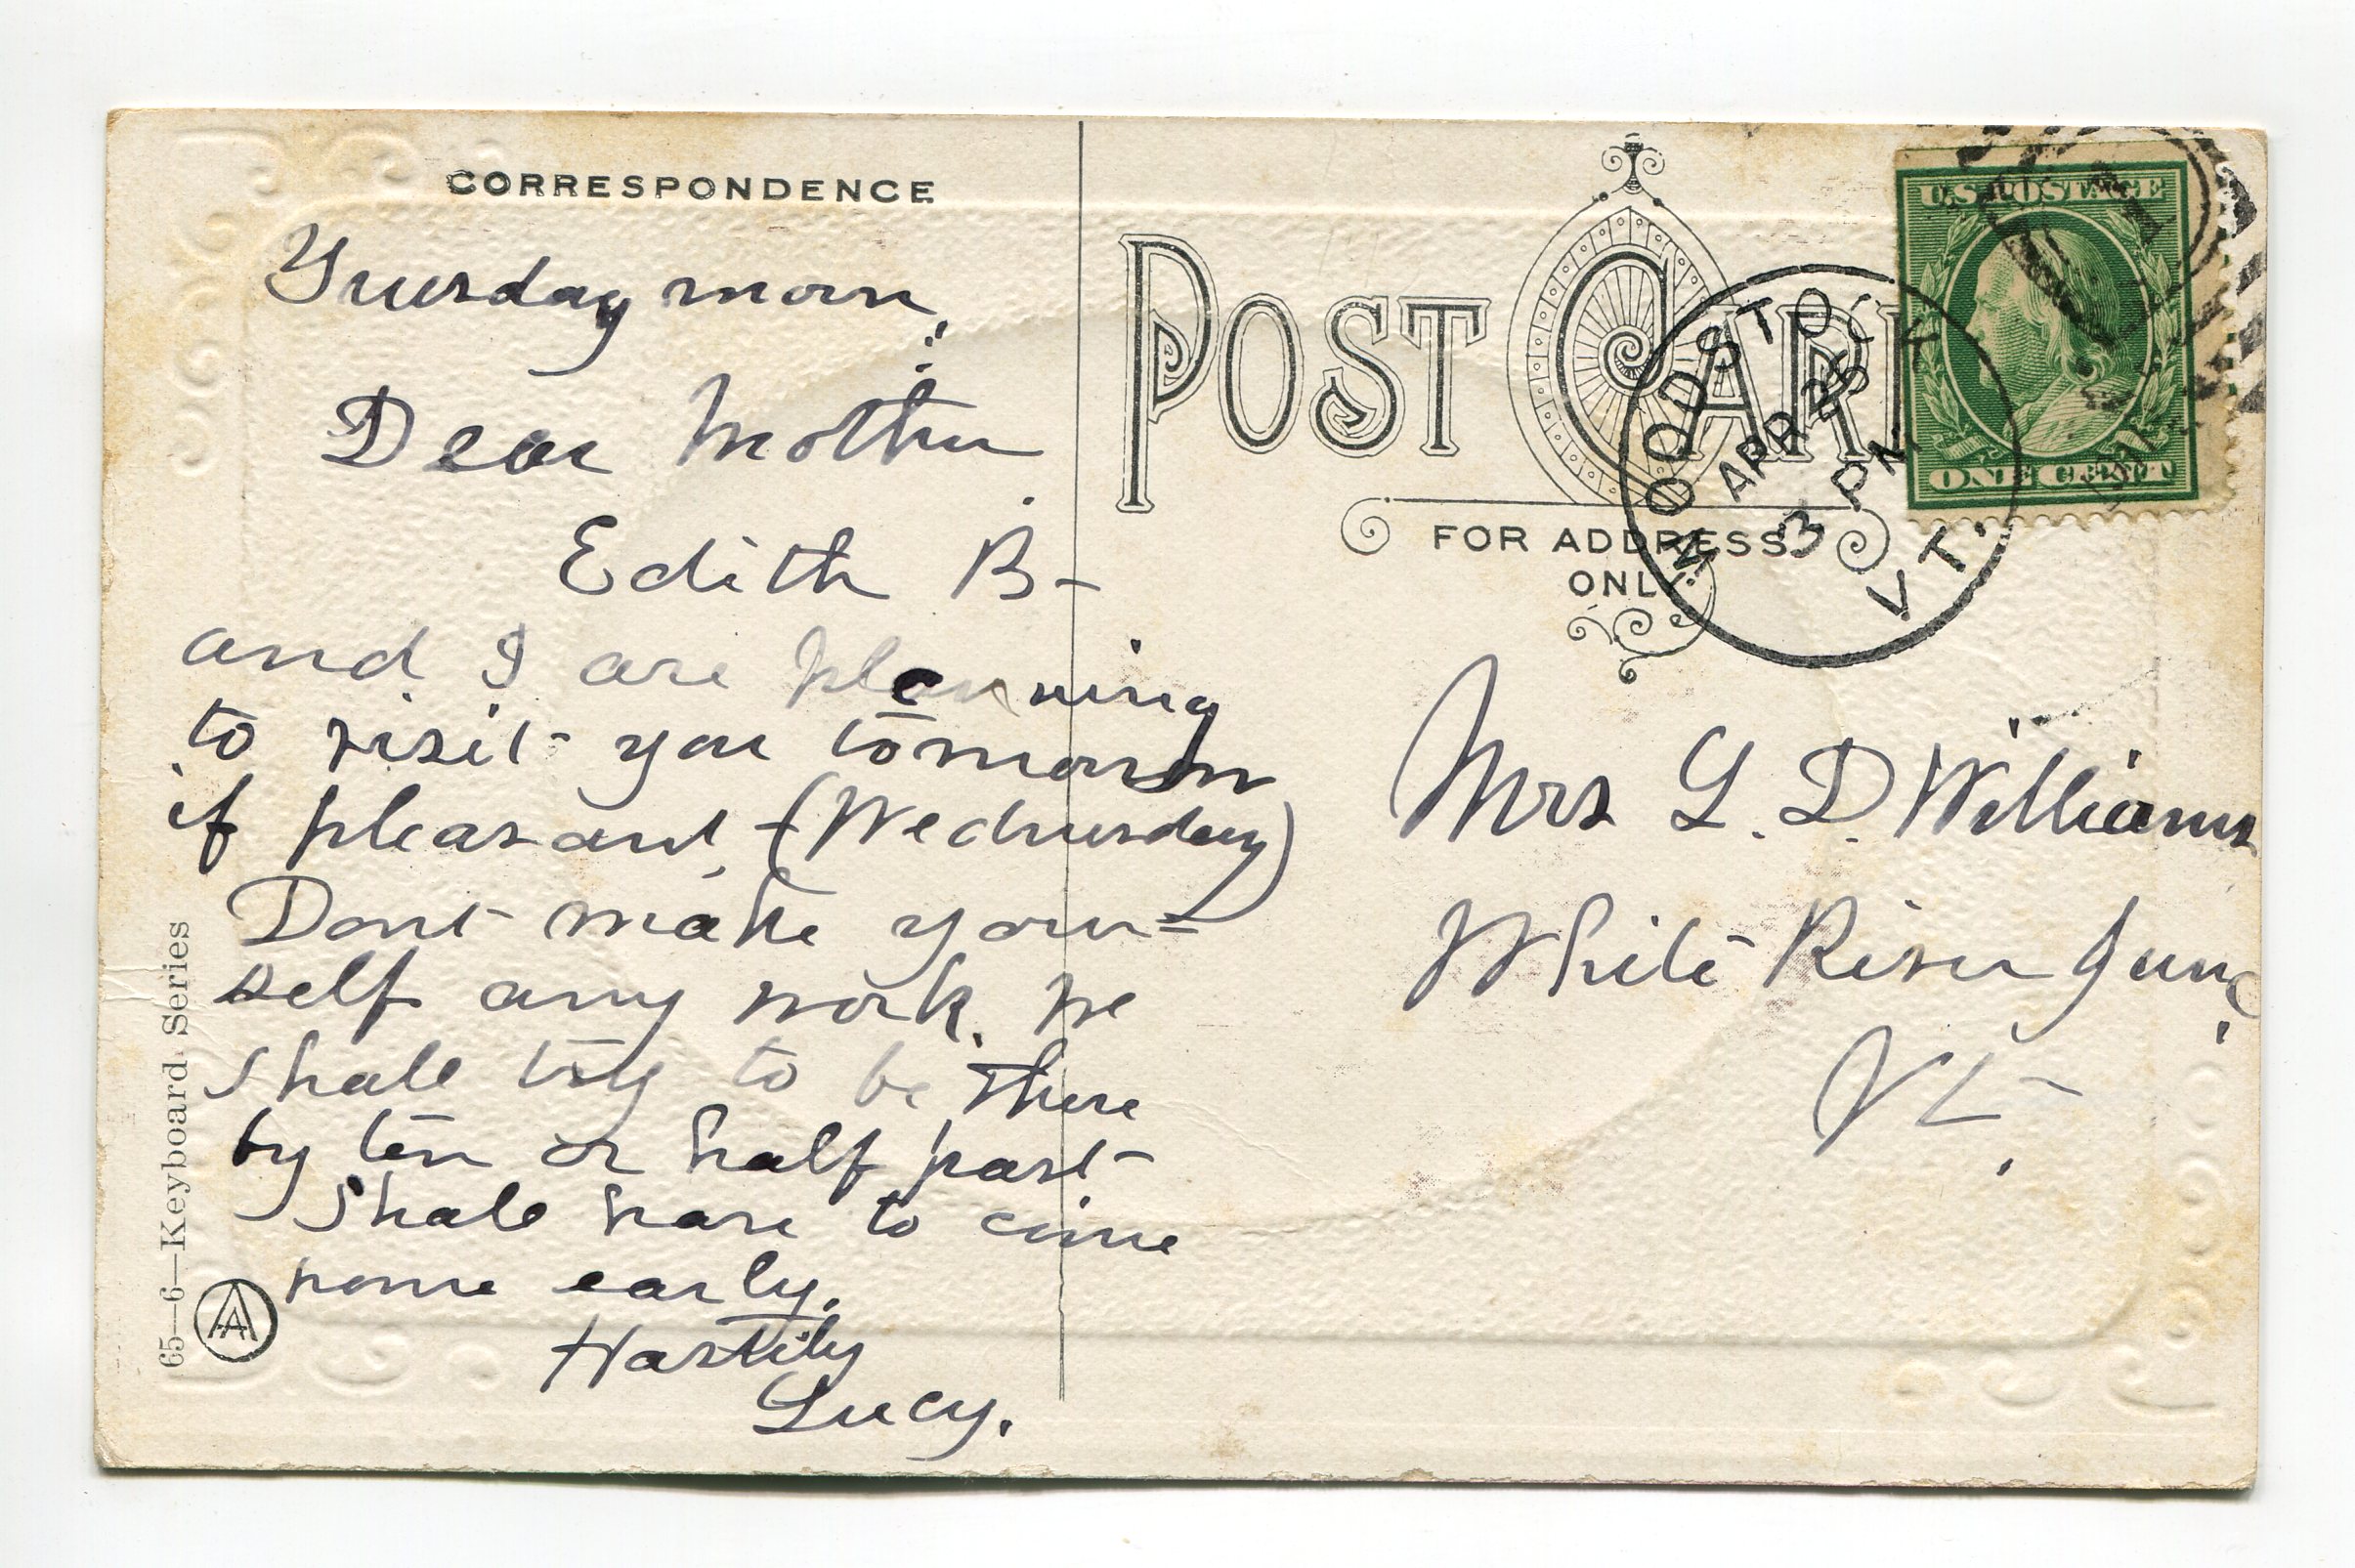 CORRESPONDENCE
Tuesday morn,
Dear Mother
Edith B-
and I are planning
to visit you tomorrow
if pleasant (Wednesday)
Dont make your=
self any work. we
shall try to be there
by ten or half past
Shall have to come
home early.
Hastily
Lucy.
65—6—Keyboard Series
POST CARD
FOR ADDRESS
ONLY
WOODSTOCK
APR
3 PM
VT.
U.S. POSTAGE
ONE CENT
Mrs L. D. Williams
White River Junc
Vt.